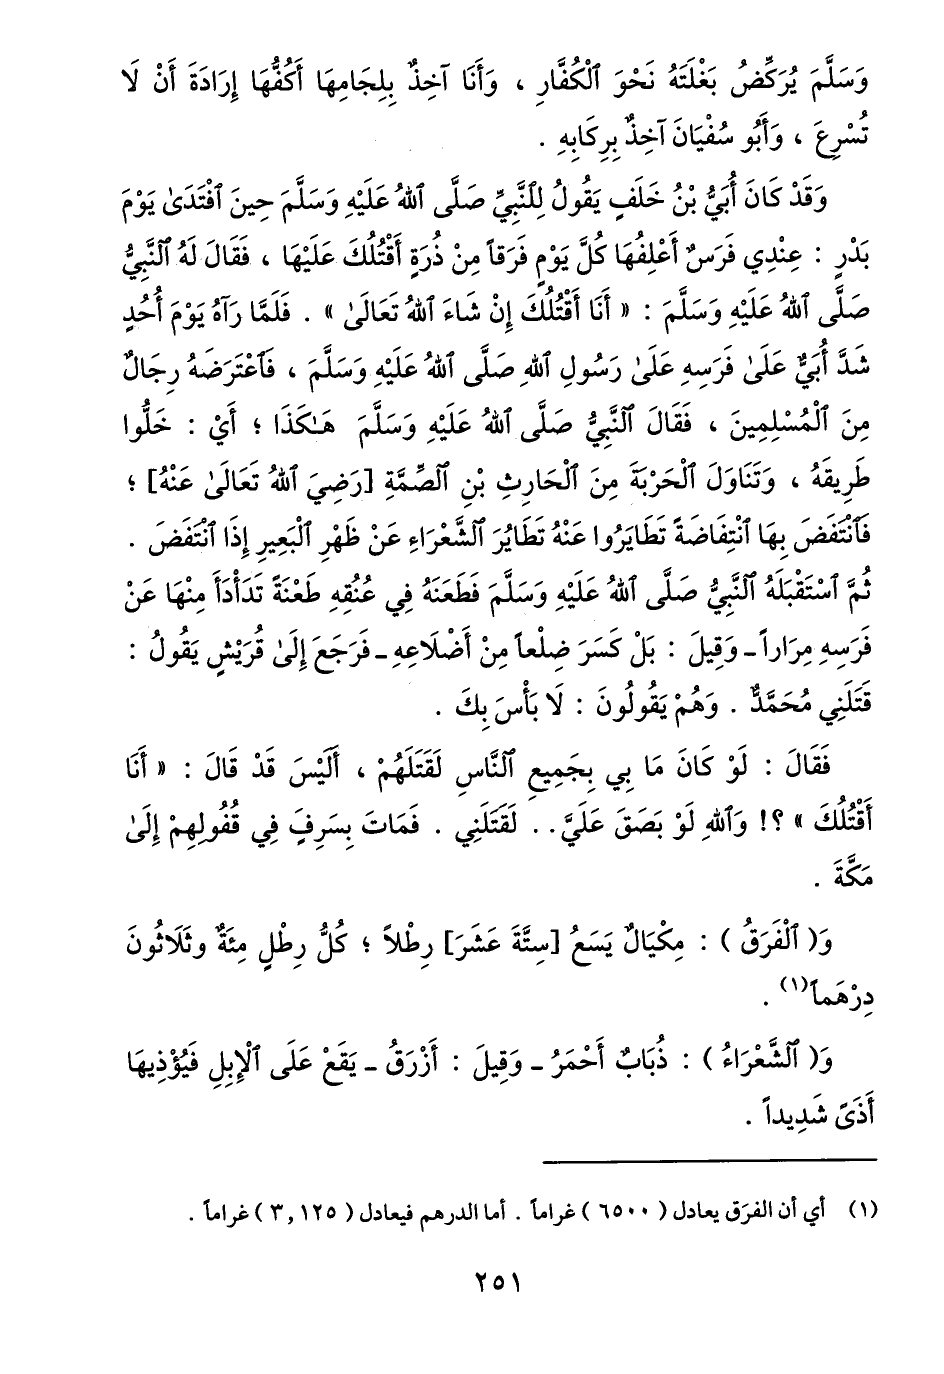 وَسَلَّمَ يُرَكِّضُ بَغْلَتَهُ نَحْوَ ٱلْكُفَّارِ ، وَأَنَا آخِذٌ بِلِجَامِهَا أَكُفُّهَا إِرَادَةَ أَنْ لَا
تُسْرِعَ ، وَأَبُو سُفْيَانَ آخِذٌ بِرِكَابِهِ .
وَقَدْ كَانَ أُبَيُّ بْنُ خَلَفٍ يَقُولُ لِلنَّبِيِّ صَلَّى ٱللهُ عَلَيْهِ وَسَلَّمَ حِينَ ٱفْتَدَىٰ يَوْمَ
بَدْرٍ : عِنْدِي فَرَسٌ أَعْلِفُهَا كُلَّ يَوْمٍ فَرَقاً مِنْ ذُرَةٍ أَقْتُلُكَ عَلَيْهَا ، فَقَالَ لَهُ ٱلنَّبِيُّ
صَلَّى ٱللهُ عَلَيْهِ وَسَلَّمَ : « أَنَا أَقْتُلُكَ إِنْ شَاءَ ٱللهُ تَعَالَىٰ » . فَلَمَّا رَآهُ يَوْمَ أُحُدٍ
شَدَّ أُبَيٌّ عَلَىٰ فَرَسِهِ عَلَىٰ رَسُولِ ٱللهِ صَلَّى ٱللهُ عَلَيْهِ وَسَلَّمَ ، فَٱعْتَرَضَهُ رِجَالٌ
مِنَ ٱلْمُسْلِمِينَ ، فَقَالَ ٱلنَّبِيُّ صَلَّى ٱللهُ عَلَيْهِ وَسَلَّمَ هَـٰكَذَا ؛ أَيْ : خَلُّوا
طَرِيقَهُ ، وَتَنَاوَلَ ٱلْحَرْبَةَ مِنَ ٱلْحَارِثِ بْنِ ٱلصِّمَّةِ [رَضِيَ ٱللهُ تَعَالَىٰ عَنْهُ] ؛
فَٱنْتَفَضَ بِهَا ٱنْتِفَاضَةً تَطَايَرُوا عَنْهُ تَطَايُرَ ٱلشَّعْرَاءِ عَنْ ظَهْرِ ٱلْبَعِيرِ إِذَا ٱنْتَفَضَ .
ثُمَّ ٱسْتَقْبَلَهُ ٱلنَّبِيُّ صَلَّى ٱللهُ عَلَيْهِ وَسَلَّمَ فَطَعَنَهُ فِي عُنُقِهِ طَعْنَةً تَدَأْدَأَ مِنْهَا عَنْ
فَرَسِهِ مِرَاراً ـ وَقِيلَ : بَلْ كَسَرَ ضِلْعاً مِنْ أَضْلَاعِهِ ـ فَرَجَعَ إِلَىٰ قُرَيْشٍ يَقُولُ :
قَتَلَنِي مُحَمَّدٌ . وَهُمْ يَقُولُونَ : لَا بَأْسَ بِكَ .
فَقَالَ : لَوْ كَانَ مَا بِي بِجَمِيعِ ٱلنَّاسِ لَقَتَلَهُمْ ، أَلَيْسَ قَدْ قَالَ : « أَنَا
أَقْتُلُكَ » ؟! وَٱللهِ لَوْ بَصَقَ عَلَيَّ .. لَقَتَلَنِي . فَمَاتَ بِسَرِفَ فِي قُفُولِهِمْ إِلَىٰ
مَكَّةَ .
وَ( ٱلْفَرَقُ ) : مِكْيَالٌ يَسَعُ [سِتَّةَ عَشَرَ] رِطْلاً ؛ كُلُّ رِطْلٍ مِئَةٌ وثَلَاثُونَ
دِرْهَماً(١) .
وَ( ٱلشَّعْرَاءُ ) : ذُبَابٌ أَحْمَرُ ـ وَقِيلَ : أَزْرَقُ ـ يَقَعْ عَلَى ٱلْإِبِلِ فَيُؤْذِيهَا
أَذَىً شَدِيداً .
(١) أي أن الفرَق يعادل ( ٦٥٠٠ ) غراماً . أما الدرهم فيعادل ( ٣,١٢٥ ) غراماً .
٢٥١